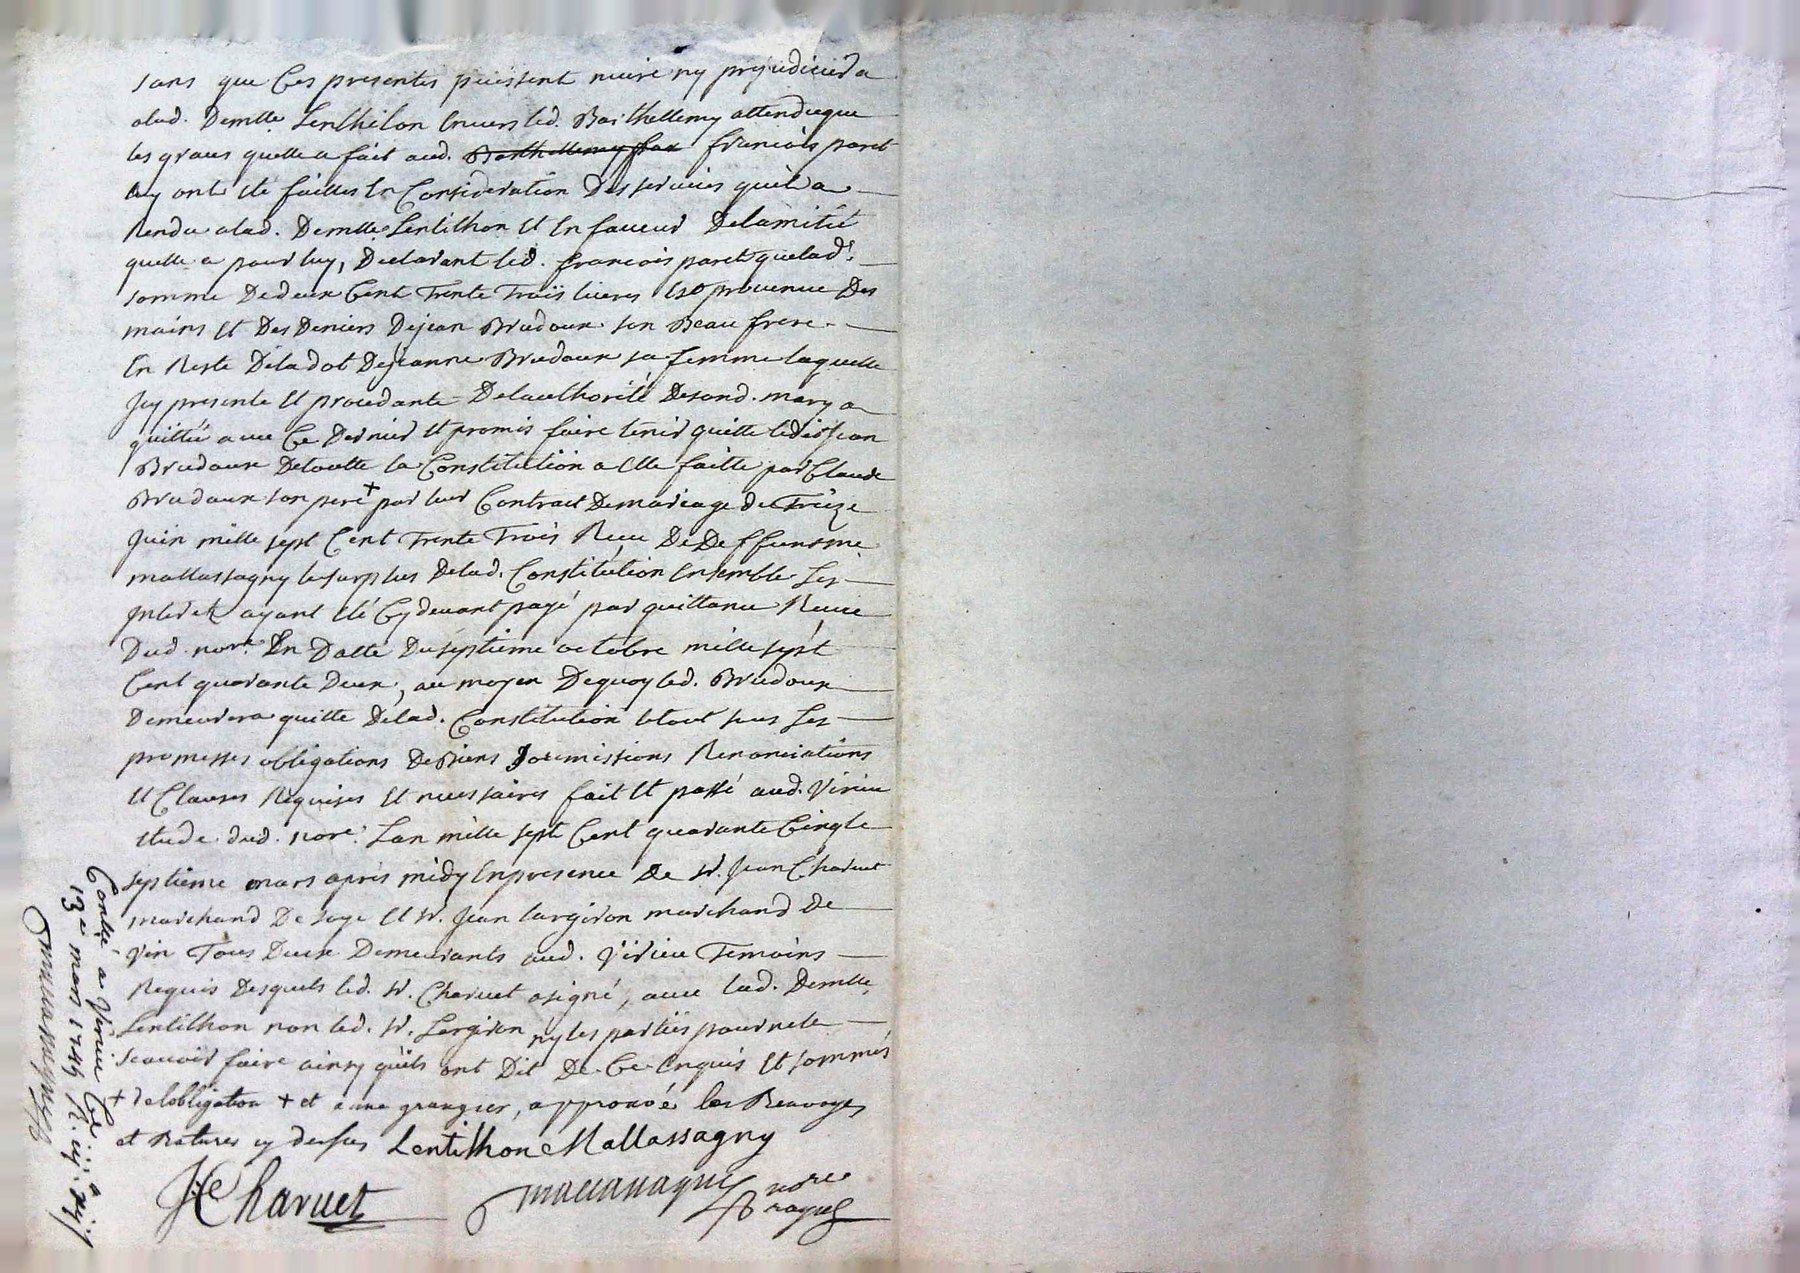 sans que Ces presentes puissent nuire ny prejudicier a
alad. Demlle Lenthilon Envers led. Barthellemy attendu que
les graces quelle a fait aud. Barthellemy par francois paret
luy ont eté faittes En Consideration Des services quil a
Rendu alad. Demlle Lentilhon Et En faveur Delamitié
quelle a pour luy, Declarant led. francois paret quelad.
somme De deux Cent Trente Trois livres Est provenue Des
mains Et Des Deniers Dejean Brudoux son Beau frere
En Reste Deladot Dejeanne Brudoux sa femme laquelle
Jcy presente Et procedante Delauthorité Desond. mary a
quitté avec Ce Dernier Et promis faire tenir quitte ledit Jean
Brudoux Detoutte la Constitution a Elle faitte par Claude
Brudoux son pere + par leur Contract Demariage du Treize
Juin mille sept Cent Trente Trois Receu De Deffunt me
mallassagny le surplus Delad. Constitution Ensemble Les
Jnterets ayant eté Cy devant payé par quittance Receue
Dud. nore En Datte Du septieme octobre mille sept
Cent quarante Deux, au moyen Dequoy led. Brudoux
Demeurera quitte Delad. Constitution letout sous Les
promesses obligations De Biens Soumissions Renonciations
Et Clauses Requises Et necessaires fait Et passé aud. Virieu
Etude dud. nore. Lan mille sept Cent quarante Cinq le
septieme mars apres midy En presence De sr. Jean Charvet
marchand De soye Et sr. Jean Largiron marchand De
Vin Tous Deux Demeurants aud. Virieu Temoins
Requis Desquels led. sr. Charvet a signé, avec lad. Demlle
Lentilhon non led. sr. Largiron ny les parties pour ne le
scavoir faire ainsy quils ont Dit De Ce Enquis Et sommés
+ de lobligation + et a une grangier, approuvé les Renvoyes
et Ratures cy dessus Lentilhon Mallassagny
JCharvet
nore
Conllé a Virieu Ce
13e mars 1745 R.